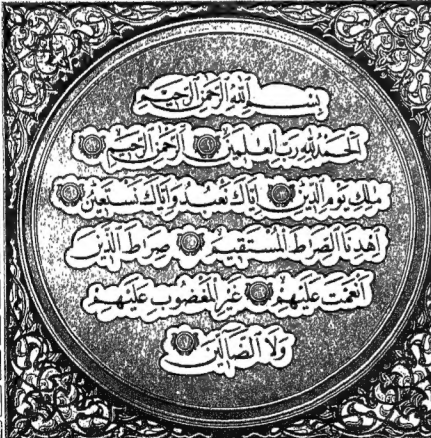 بِسْمِ اللَّهِ الرَّحْمَٰنِ الرَّحِيمِ
الْحَمْدُ لِلَّهِ رَبِّ الْعَالَمِينَ الرَّحْمَٰنِ الرَّحِيمِ
مَلِكِ يَوْمِ الدِّينِ إِيَّاكَ نَعْبُدُ وَإِيَّاكَ نَسْتَعِينُ
اهْدِنَا الصِّرَاطَ الْمُسْتَقِيمَ صِرَاطَ الَّذِينَ
أَنْعَمْتَ عَلَيْهِمْ غَيْرِ الْمَغْضُوبِ عَلَيْهِمْ
وَلَا الضَّالِّينَ